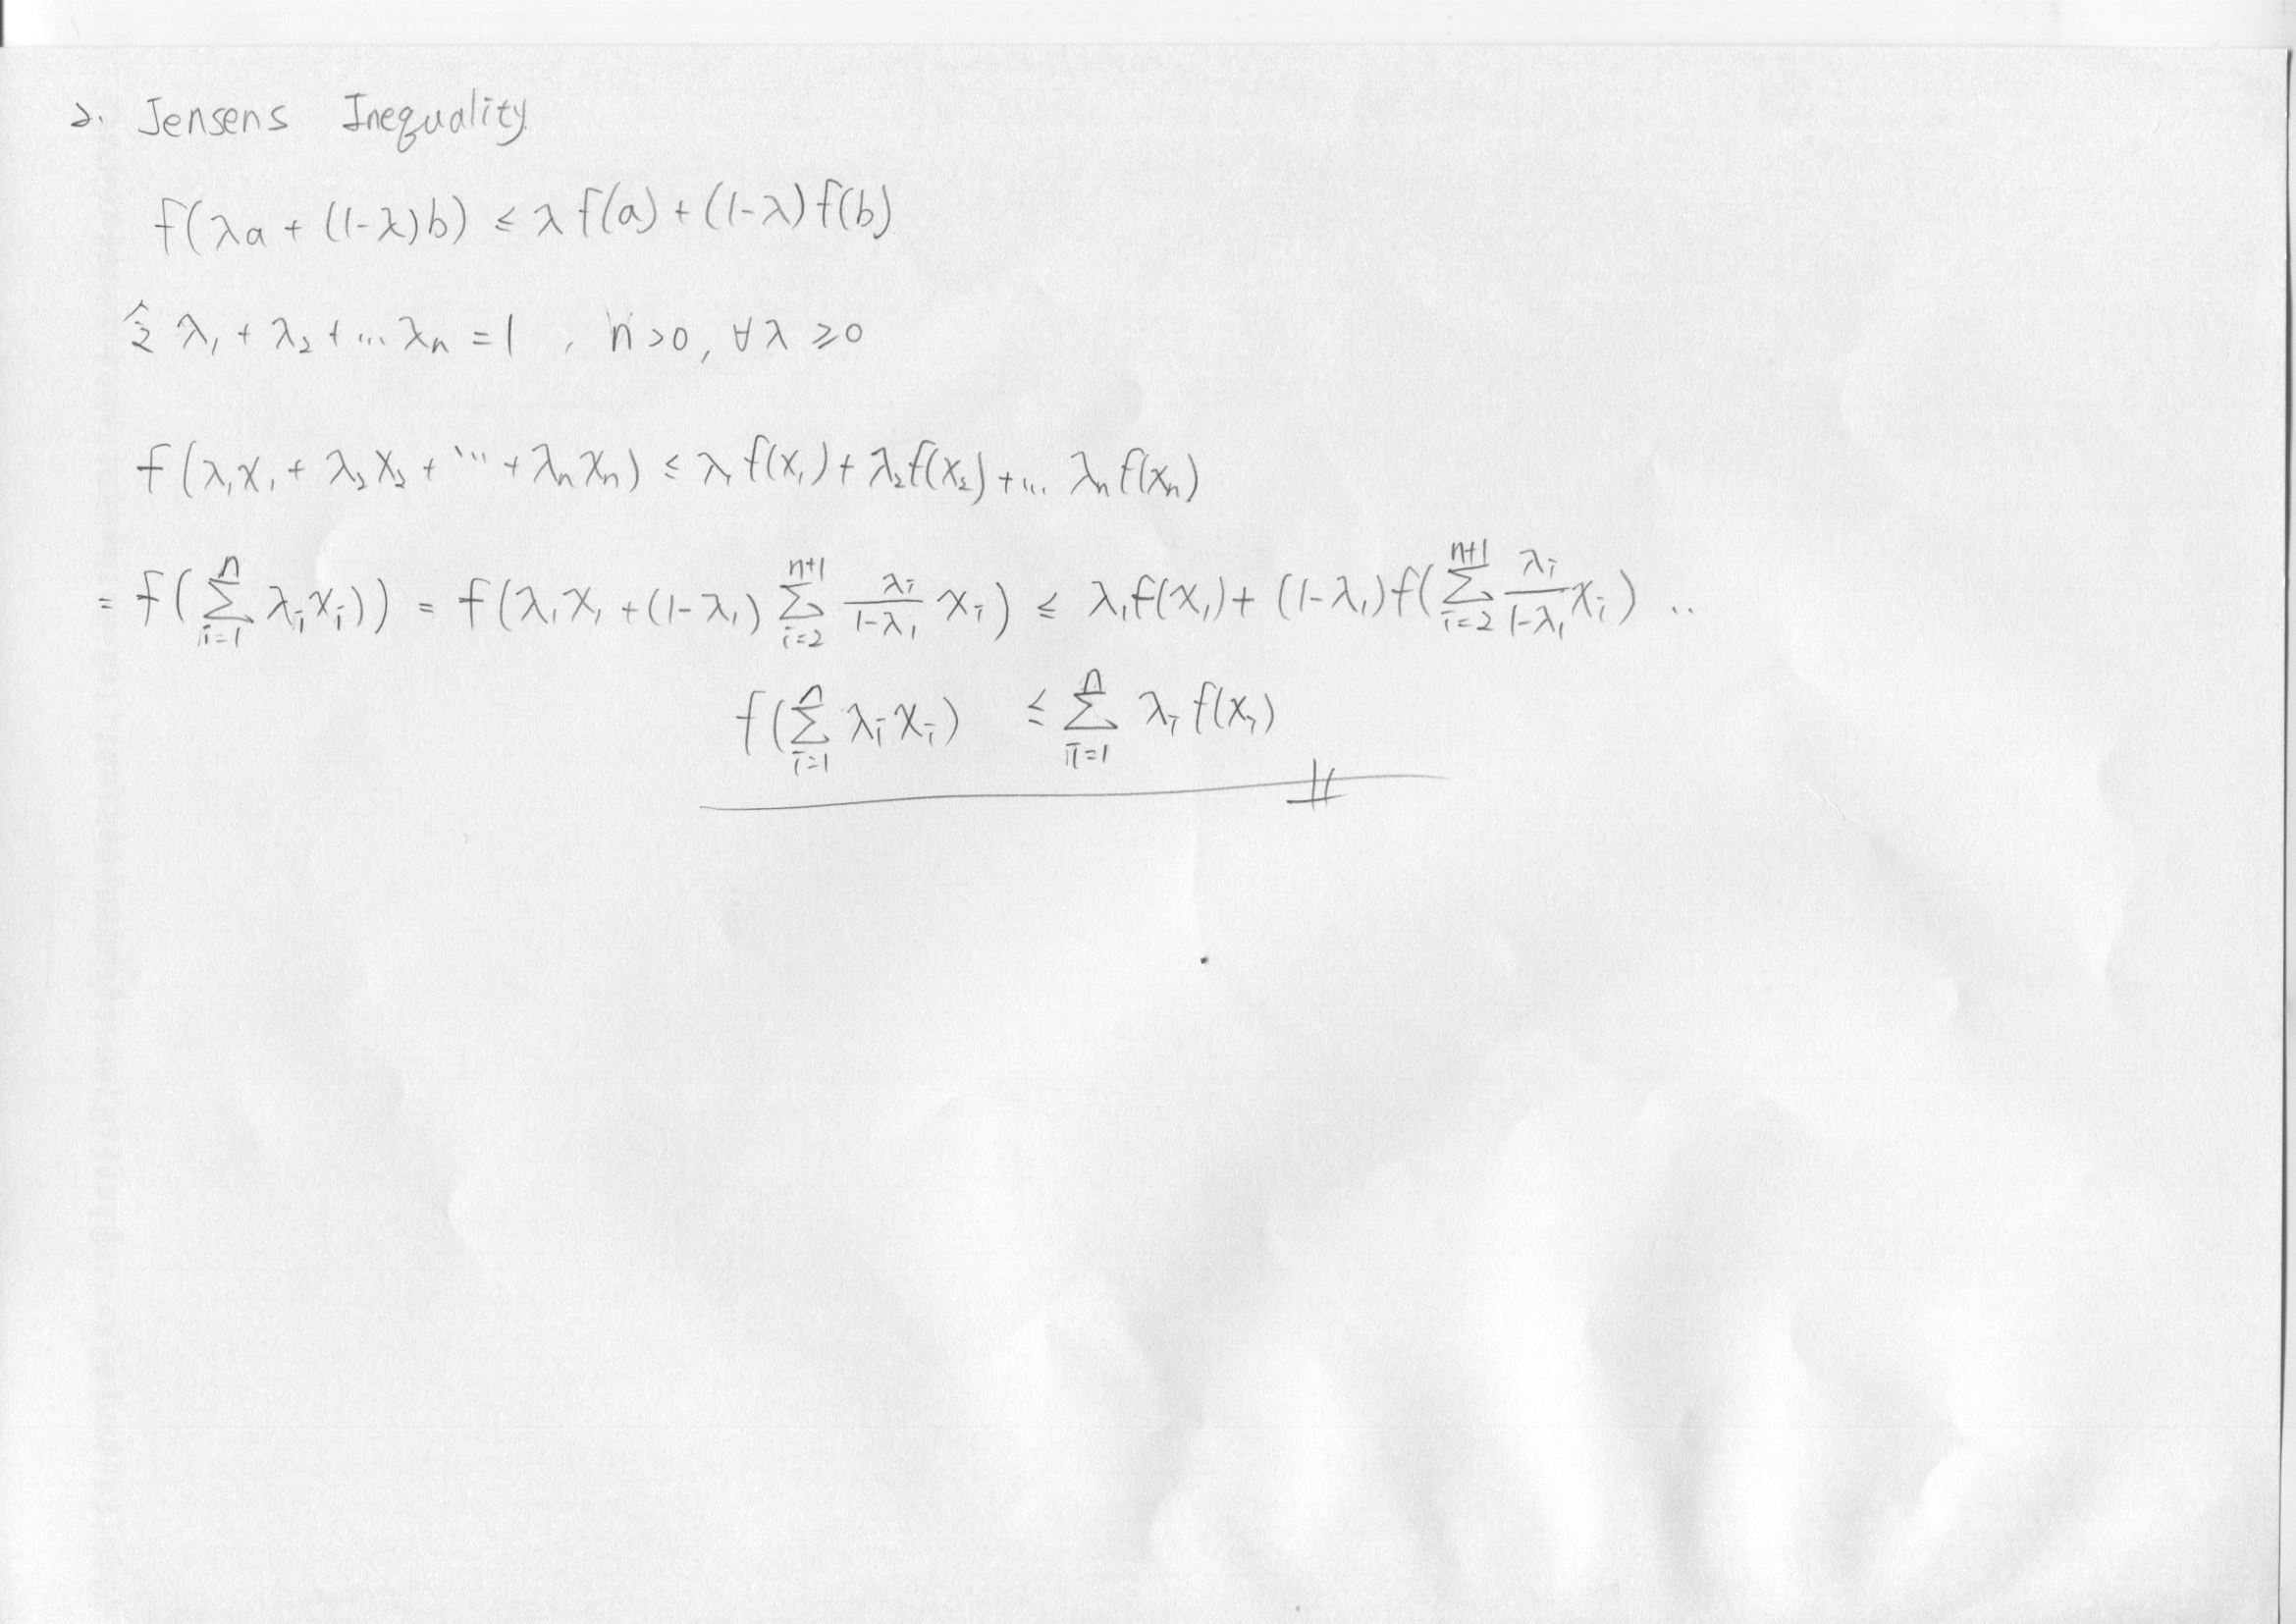 2. Jensens Inequality
f(λa + (1-λ)b) ≤ λ f(a) + (1-λ) f(b)
令 λ₁ + λ₂ + ... λₙ = 1 , n > 0, ∀ λ ≥ 0
f(λ₁x₁ + λ₂x₂ + ... + λₙxₙ) ≤ λ₁ f(x₁) + λ₂ f(x₂) + ... λₙ f(xₙ)
= f(∑_{i=1}^{n} λᵢxᵢ)) = f(λ₁x₁ + (1-λ₁) ∑_{i=2}^{n+1} λᵢ/(1-λ₁) xᵢ) ≤ λ₁f(x₁) + (1-λ₁) f(∑_{i=2}^{n+1} λᵢ/(1-λ₁) xᵢ) ..
f(∑_{i=1}^{n} λᵢxᵢ) ≤ ∑_{i=1}^{n} λᵢ f(xᵢ)